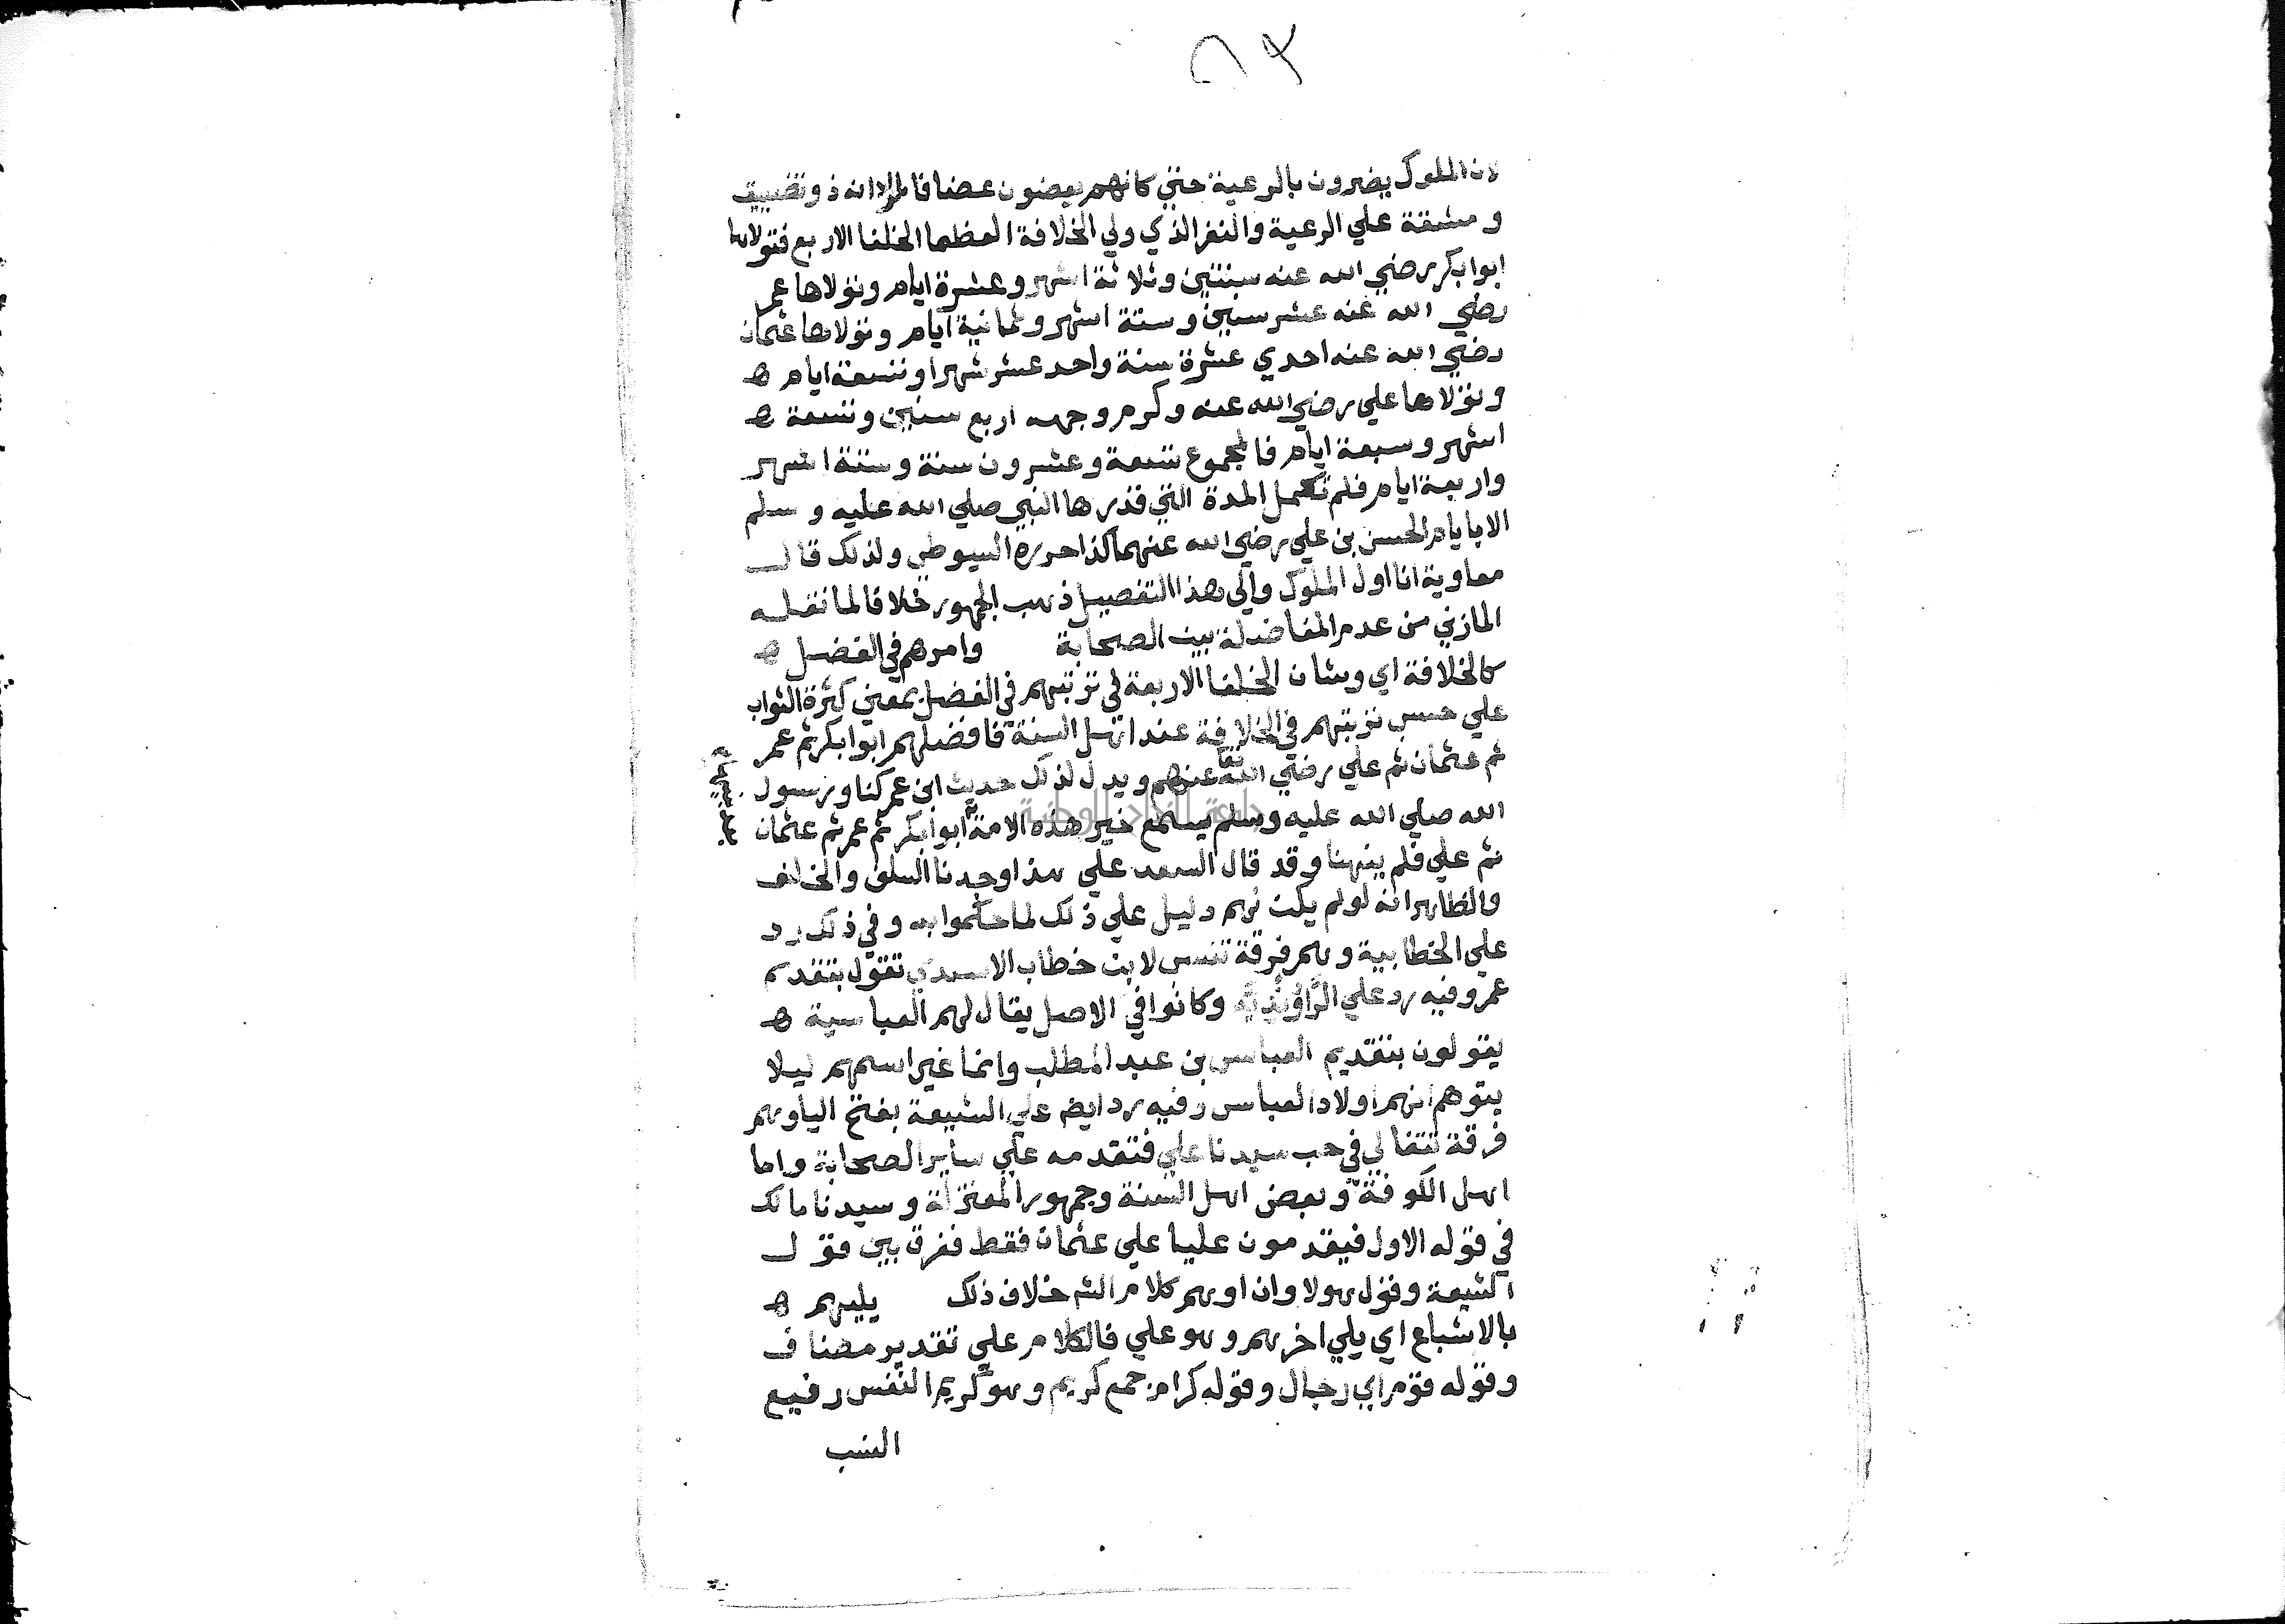 ٨٣
لان الملوك يضرون بالرعية حتي كانهم يعضون عضا فالمراد انه ذو تضييق
ومشقة علي الرعية والنفر الذي ولي الخلافة العظما الخلفا الاربع فتولاها
ابوا بكر رضي الله عنه سنتين وثلاثة اشهر وعشرة ايام وتولاها عمر
رضي الله عنه عشر سنين وستة اشهر وثمانية ايام وتولاها عثمان
رضي الله عنه احدي عشرة سنة واحد عشر شهرا وتسعة ايام ه
وتولاها علي رضي الله عنه وكرم وجهه اربع سنين وتسعة ه
اشهر وسبعة ايام فالمجموع تسعة وعشرون سنة وستة اشهر
واربعة ايام فلم تكمل المدة التي قدرها النبي صلي الله عليه وسلم
الا بايام الحسن بن علي رضي الله عنهما كذا حرره السيوطي ولذلك قال
معاوية انا اول الملوك والي هذا التفصيل ذهب الجمهور خلافا لما نقله
المازني من عدم المفاضلة بين الصحابة وامرهم في الفضل ه
كالخلافة اي وشان الخلفا الاربعة في ترتبهم في الفضل بمعني كثرة الثواب
علي حسب ترتبهم في الخلافة عند اهل السنة فافضلهم ابوا بكر ثم عمر
ثم عثمان ثم علي رضي الله تعا عنهم ويدل لذلك حديث ابن عمر كنا ورسول
الله صلي الله عليه وسلم يسمع خير هذه الامة ابوا بكر ثم عمر ثم عثمان
ثم علي فلم ينهنا وقد قال السعد علي هذا وجدنا السلف والخلف
والظاهر انه لو لم يكن لهم دليل علي ذلك لما حكموا به وفي ذلك رد
علي الخطابية وهم فرقة تنسب لابن خطاب الاسدي تقول بتقديم
عمر وفيه رد علي الراونديه وكانوا في الاصل يقال لهم العباسية ه
يقولون بتقديم العباس بن عبد المطلب وانما غير اسمهم ليلا
يتوهم انهم اولاد العباس وفيه رد ايضا علي الشيعة بفتح اليا وهم
فرقة تتغالي في حب سيدنا علي فتقدمه علي ساير الصحابة واما
اهل الكوفة وبعض اهل السنة وجمهور المعتزلة وسيدنا مالك
في قوله الاول فيقدمون عليا علي عثمان فقط ففرق بين قول
الشيعة وقول هولا وان اوهم كلام الشم خلاف ذلك يليهم ه
بالاشباع اي يلي اخرهم وهو علي فالكلام علي تقدير مضاف
وقوله قوم اي رجال وقوله كرام جمع كريم وهو كريم النفس رفيع
النسب
جامعة النجاح الوطنية